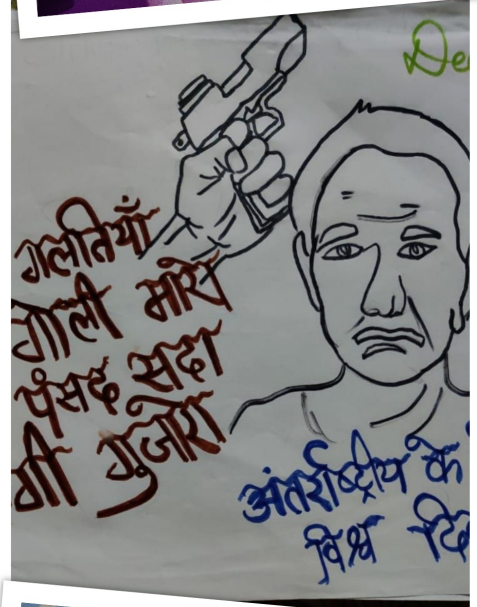 De
गलतियाँ
गोली मारो
पंसद सदा
गी गुजारो
अंतर्राष्ट्रीय के
विश्व दि